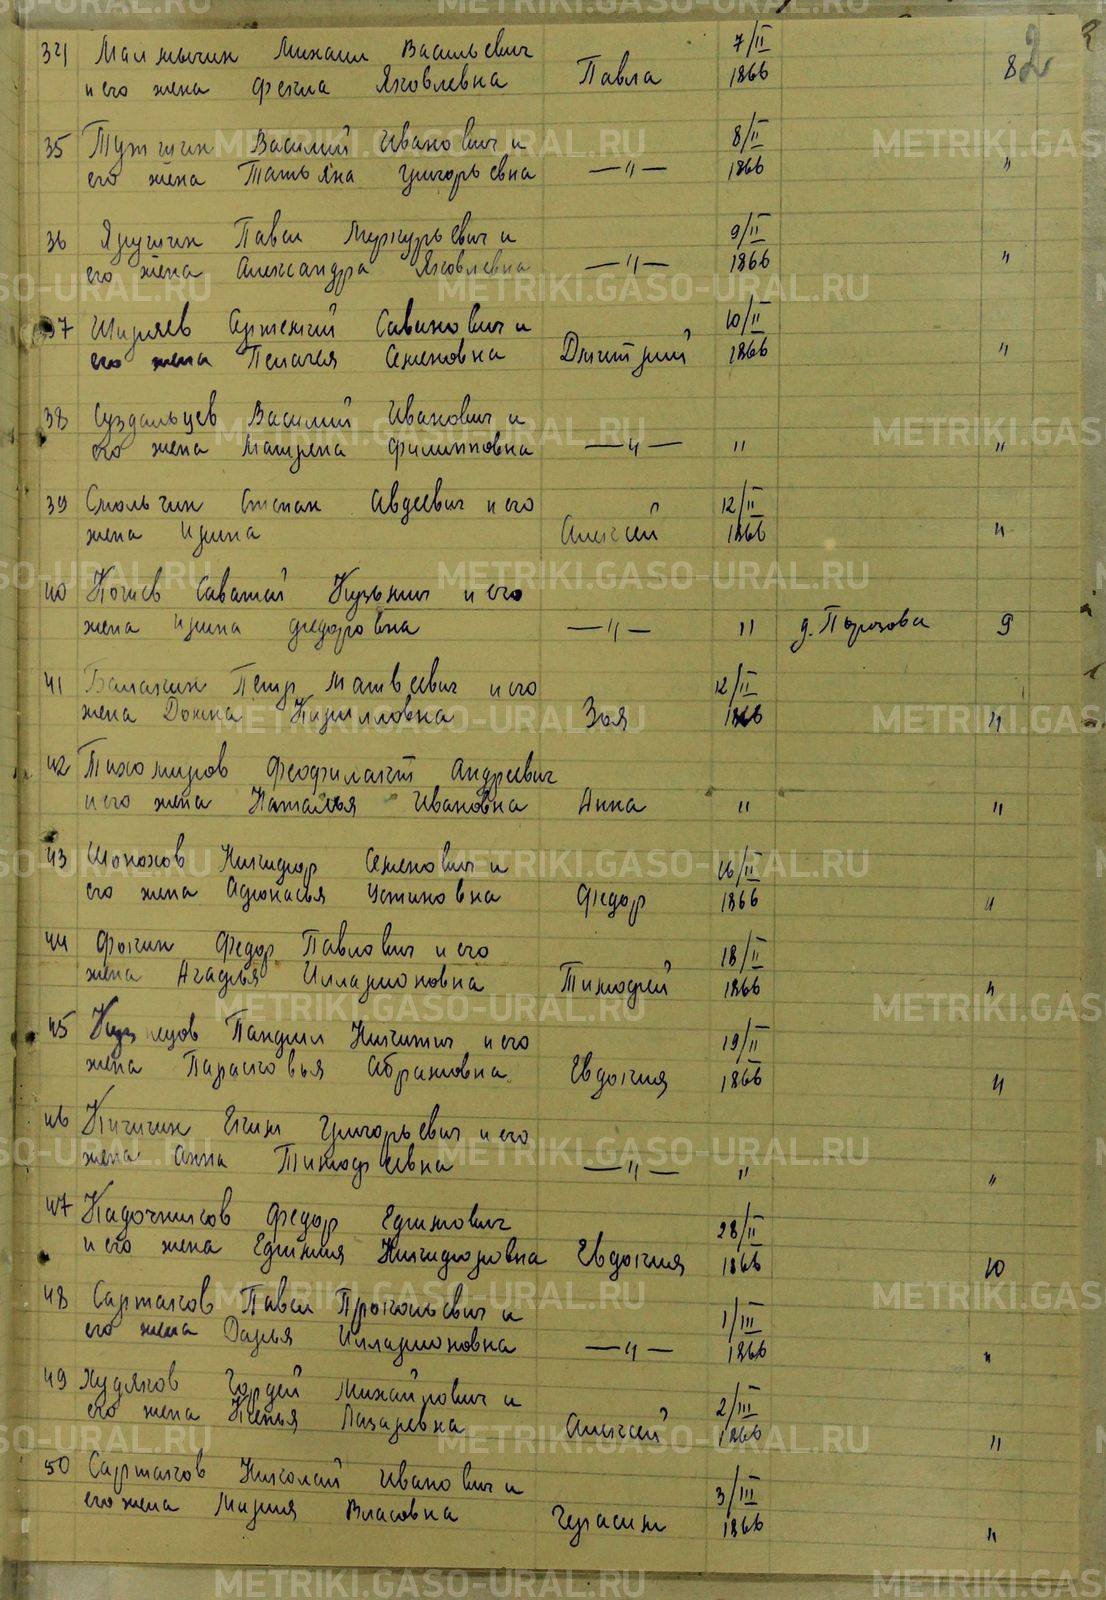 34 Малмычкин Михаил Васильевич 7/II 8
и его жена Фекла Яковлевна Павла 1866
35 Тужикин Василий Иванович и 8/II
его жена Татьяна Григорьевна —"— 1866 "
36 Ярушкин Павел Меркурьевич и 9/II
его жена Александра Яковлевна —"— 1866 "
37 Ширяев Артемий Савинович и 10/II
его жена Пелагея Семеновна Дмитрий 1866 "
38 Суздальцев Василий Иванович и
его жена Матрена Филипповна —"— " "
39 Смольгин Степан Авдеевич и его 12/II
жена Ирина Алексей 1866 "
40 Савватий Кузьмич и его
жена Ирина Федоровна —"— " д. Порозова 9
41 Балакин Петр Матвеевич и его 12/II
жена Домна Кирилловна Зоя 1866 "
42 Тихомиров Феофилакт Андреевич
и его жена Наталья Ивановна Анна " "
43 Шопохов Никифор Семенович и 16/II
его жена Афонасья Устиновна Федор 1866 "
44 Фокин Федор Павлович и его 18/II
жена Агафья Илларионовна Тимофей 1866 "
45 Кузнецов Панфил Никитич и его 19/II
жена Парасковья Абрамовна Евдокия 1866 "
46 Кичигин Еким Григорьевич и его
жена Анна Тимофеевна —"— " "
47 Кадочников Федор Ефимович 28/II
и его жена Ефимия Никифоровна Евдокия 1866 10
48 Сартаков Павел Прокопьевич и 1/III
его жена Дарья Илларионовна —"— 1866 "
49 Худяков Гордей Михайлович и 2/III
его жена Лазаревна Алексей 1866 "
50 Сартаков Николай Иванович и 3/III
его жена Мария Власовна Герасим 1866 "
METRIKI.GASO-URAL.RU